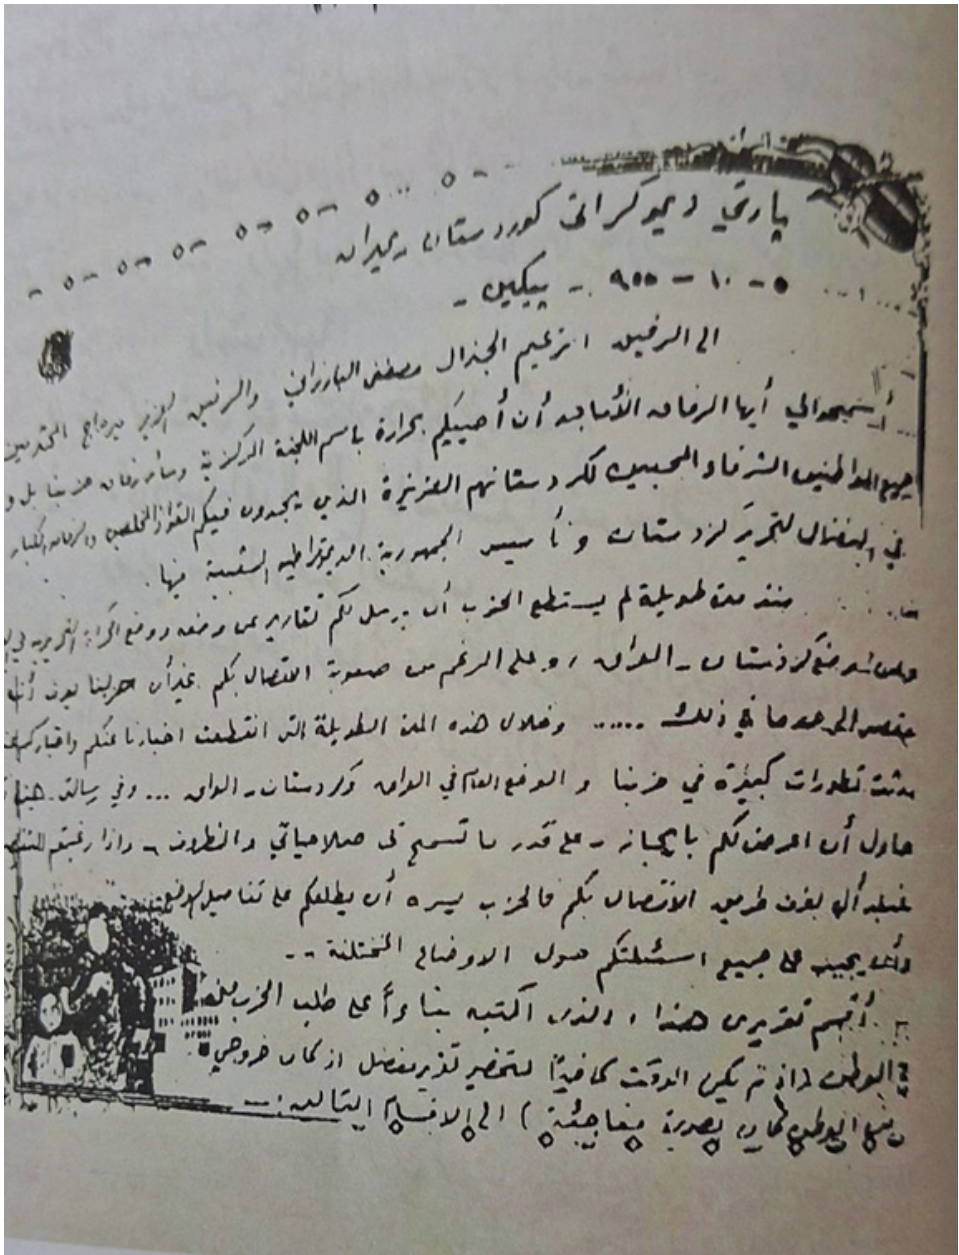 پارتي ديموكراتى كوردستان - عيراق
٥ - ١٠ - ٩٥٥ - پيكين -
الى الرفيق الزعيم الجنرال مصطفى البارزاني والرفيق العزيز ميرحاج المحترمين
أسمحوالي أيها الرفاق الأماجد أن أحييكم بحرارة باسم اللجنة المركزية وسائر رفاق حزبنا بل و
جميع المواطنين الشرفاء المحبين لكردستانهم العزيزة الذين يجدون فيكم القواد المخلصين
في النضال لتحرير كردستان وتأسيس الجمهورية الديمقراطية الشعبية فيها .
منذ مدة طويلة لم يستطع الحزب أن يرسل لكم تقارير عن وضعه ووضع الحركة التحررية في
كردستان - العراق ، وعلى الرغم من صعوبة الاتصال بكم غير أن حزبنا يعرف أنه
مقصر الى حد ما في ذلك ...... وخلال هذه المدة الطويلة التي انقطعت اخبارنا عنكم واخباركم عنا
حدثت تطورات كبيرة في حزبنا و الوضع العام في العراق وكردستان - العراق ... وفي رسالتي هذه
احاول أن اعرض لكم بايجاز - على قدر ما تسمح لى صلاحياتي والظروف - واذا رغبتم
طريق الاتصال بكم فالحزب يسره أن يطلعكم على تفاصيل الوضع
وأن يجيب على جميع اسئلتكم حول الاوضاع المختلفة --
أقسم تقريرى هذا ، والذى اكتبه بناءاً على طلب الحزب
الوطن (اذ لم يكن الوقت كافياً لتحضير تقرير مفصل اذ كان خروجي
من الوطن كان بصورة مفاجئة ) الى الاقسام التالية :-